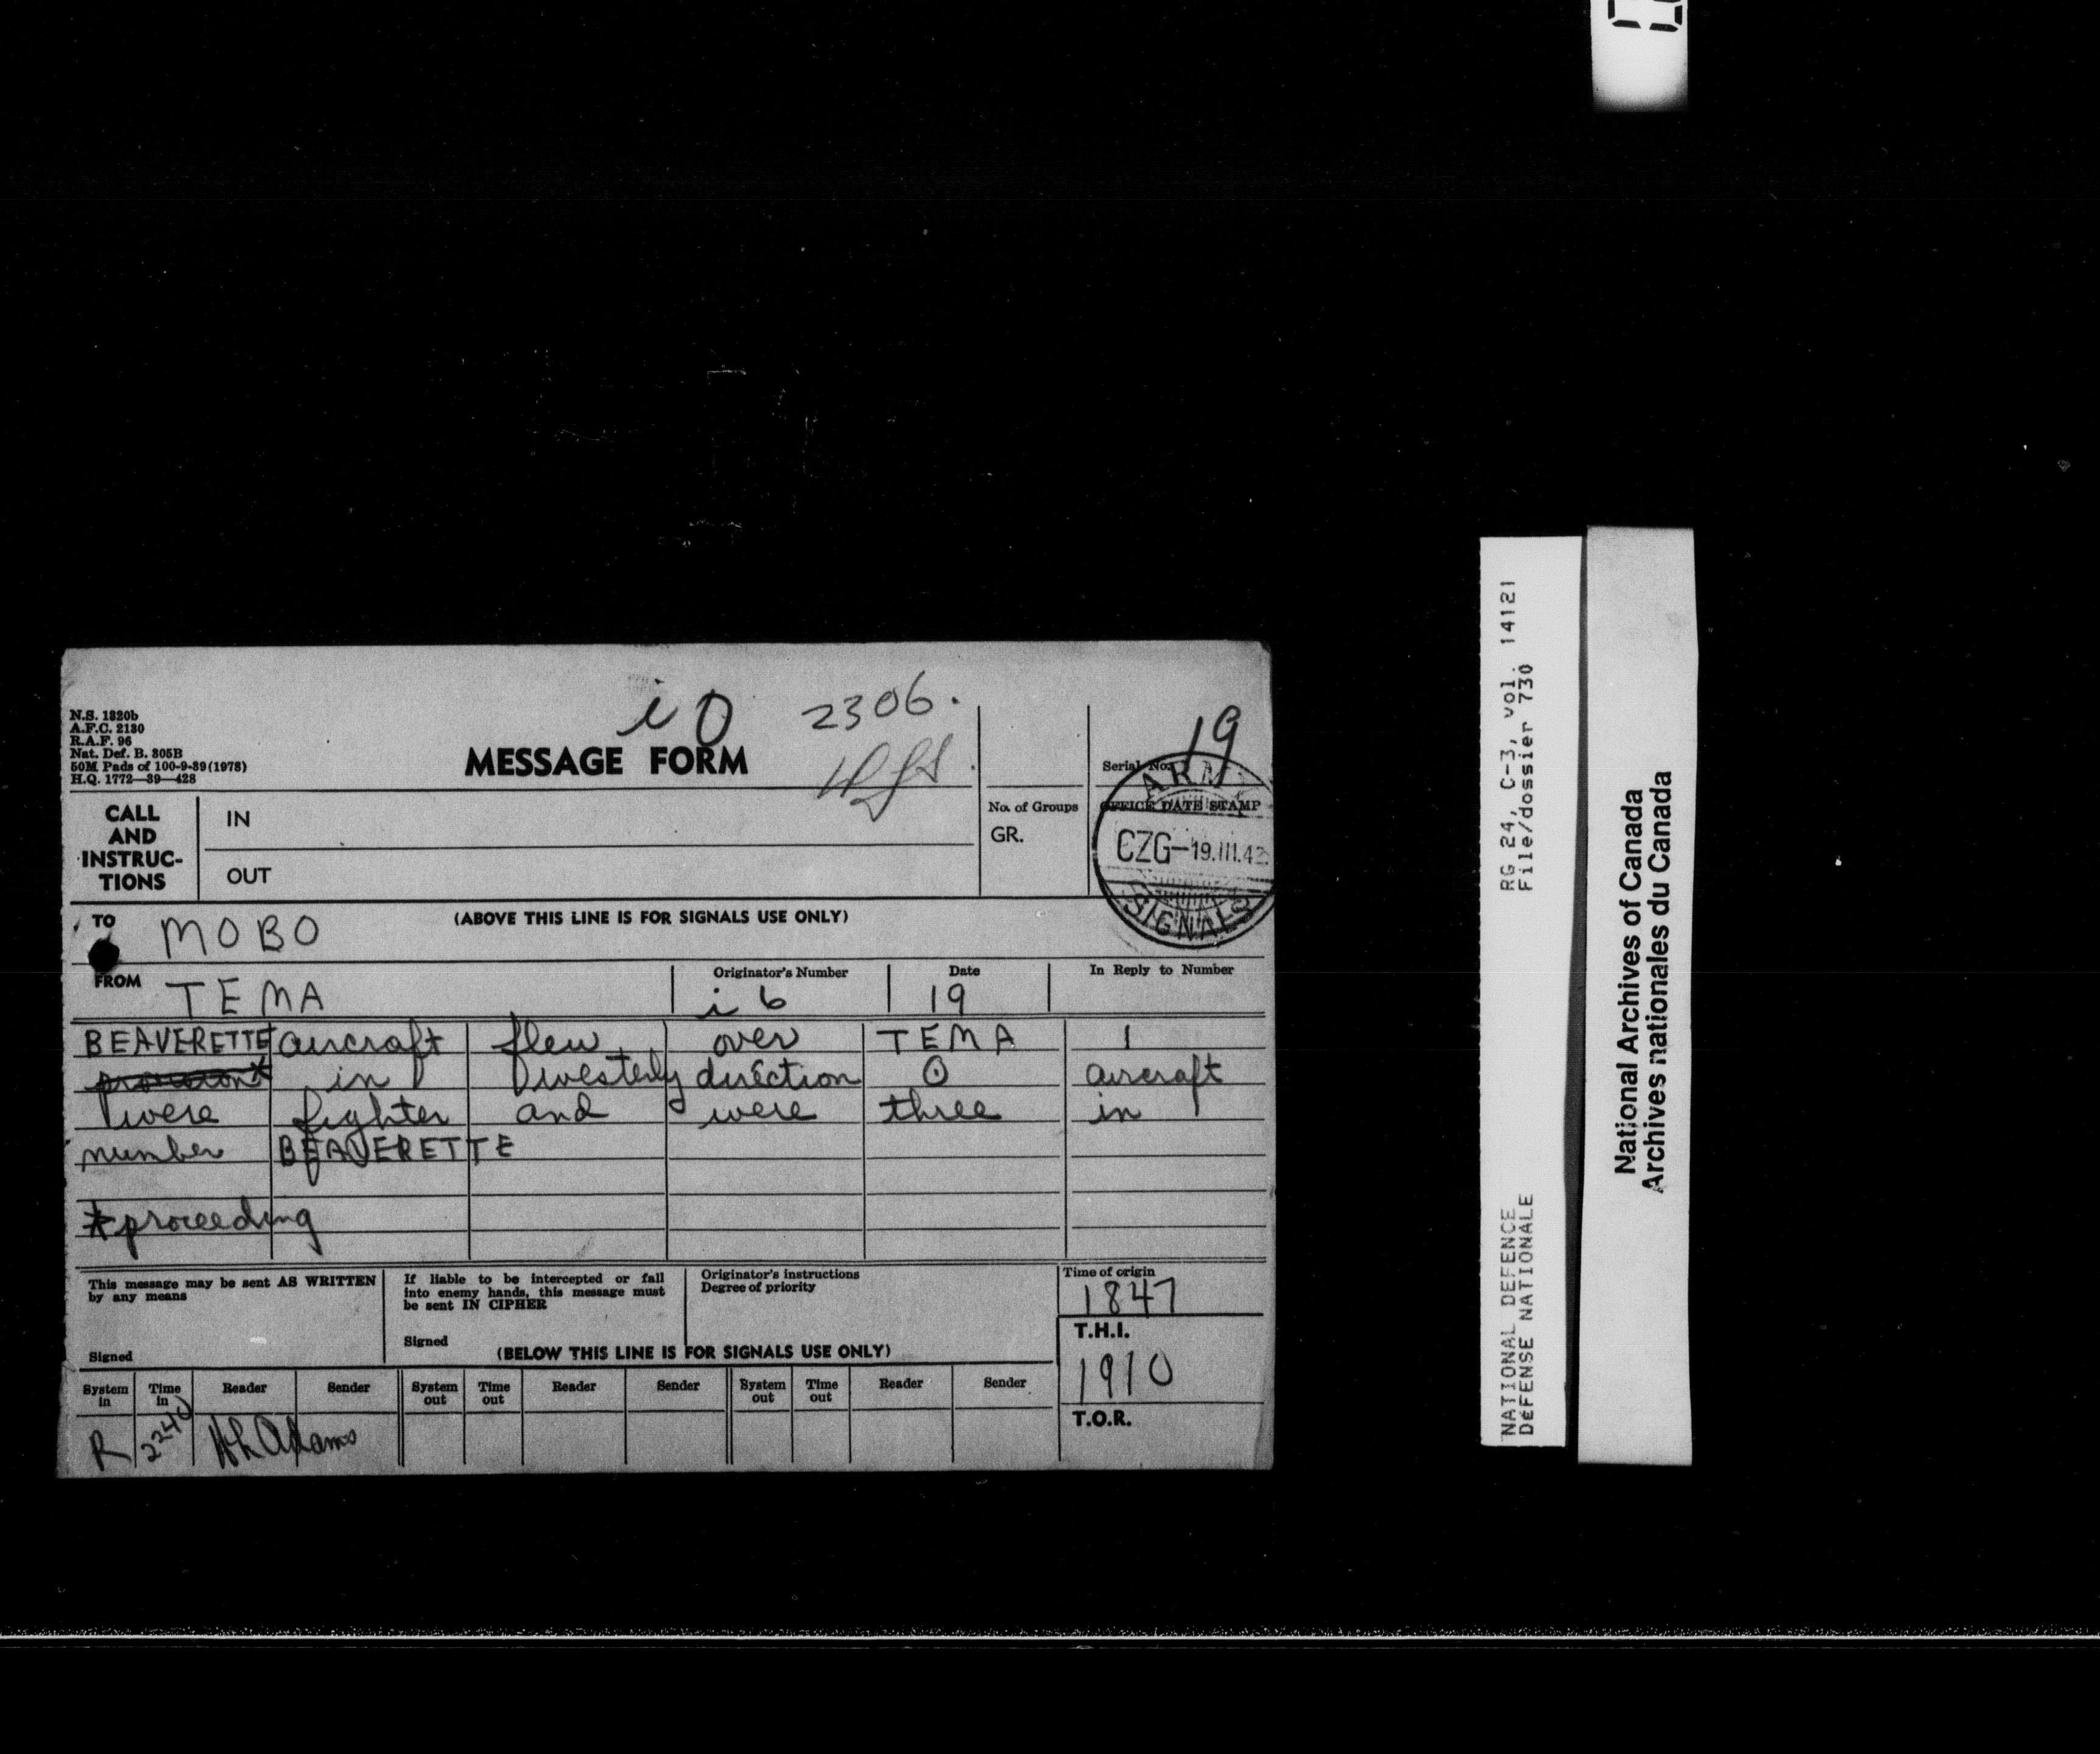 i 0 2306.
N.S. 1320b
A.F.C. 2130
R.A.F. 96
Nat. Def. B. 305B
50M Pads of 100-9-39(1978)
H.Q. 1772—39—428
MESSAGE FORM
19
Serial No.
CALL AND INSTRUC- TIONS
IN
OUT
No. of Groups
GR.
OFFICE DATE STAMP
ARMY
CZG—19.III.42
SIGNALS
TO MOBO
(ABOVE THIS LINE IS FOR SIGNALS USE ONLY)
FROM TEMA
Originator's Number i6
Date 19
In Reply to Number
BEAVERETTE aircraft flew over TEMA 1
* in westerly direction ⊙ aircraft
were fighter and were three in
number BEAVERETTE
* proceeding
This message may be sent AS WRITTEN
by any means
Signed
If liable to be intercepted or fall
into enemy hands, this message must
be sent IN CIPHER
Signed
Originator's instructions
Degree of priority
Time of origin
1847
T.H.I.
1910
T.O.R.
(BELOW THIS LINE IS FOR SIGNALS USE ONLY)
System in Time in Reader Sender System out Time out Reader Sender System out Time out Reader Sender
R 2240 HL Adams
RG 24, C-3, vol. 14121
File/dossier 730
NATIONAL DEFENCE
DÉFENSE NATIONALE
National Archives of Canada
Archives nationales du Canada